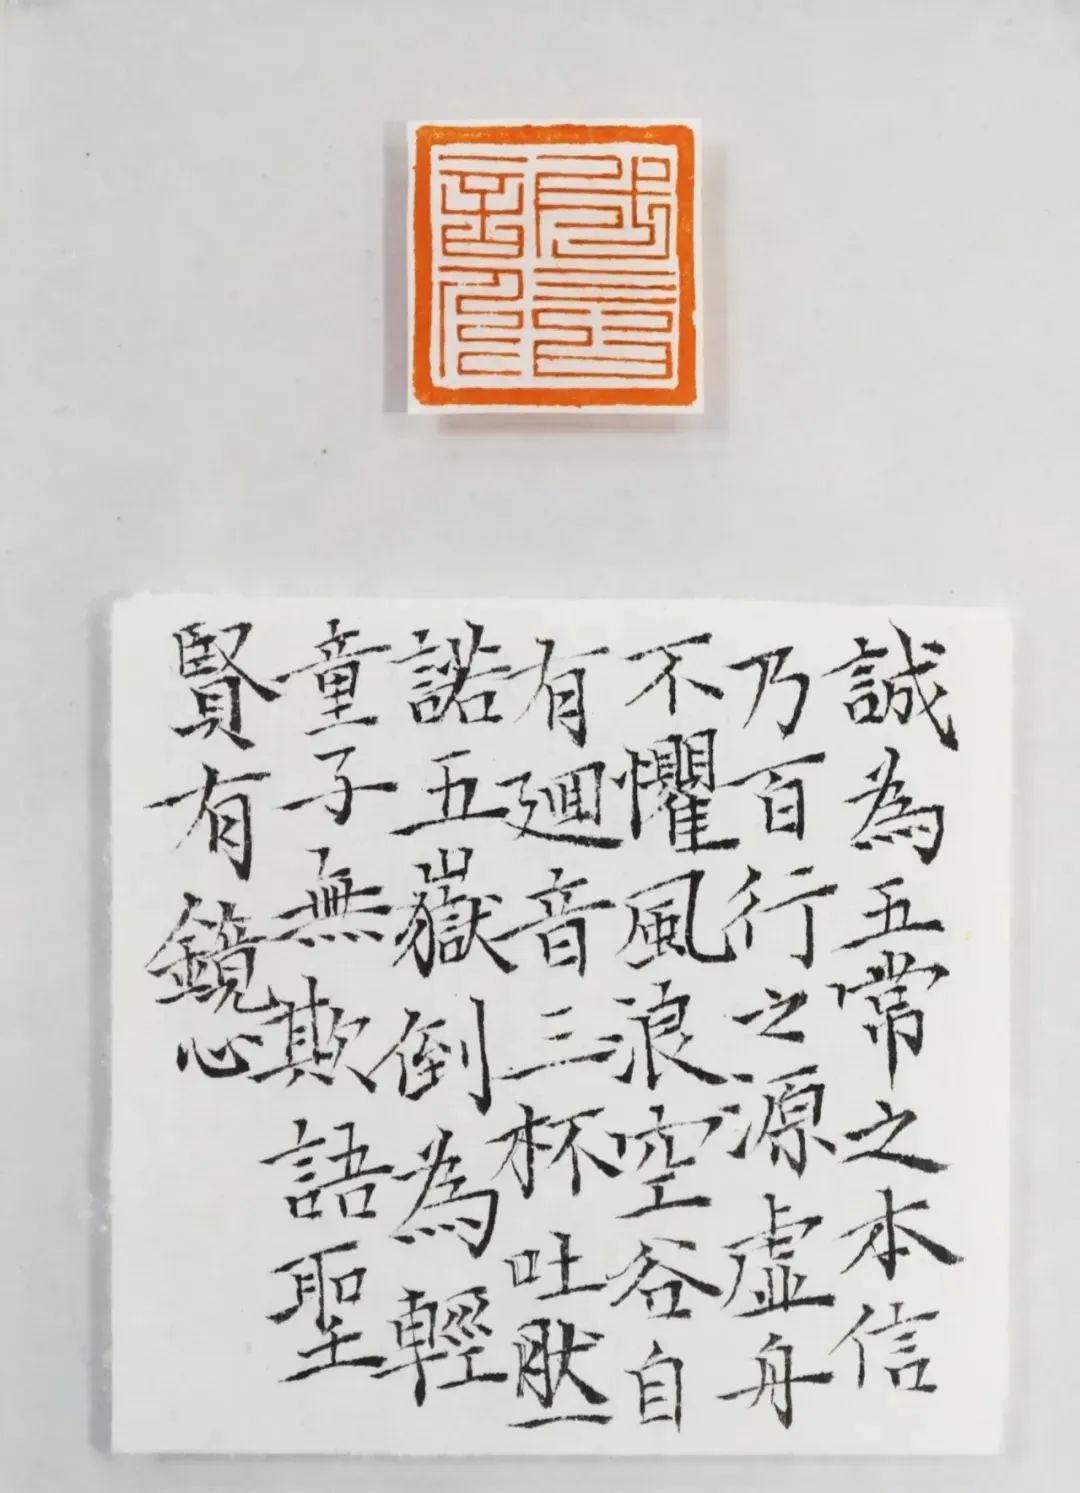 誠為五常之本信
乃百行之源虛舟
不懼風浪空谷自
有迴音三杯吐然
諾五嶽倒為輕
童子無欺語聖
賢有鏡心